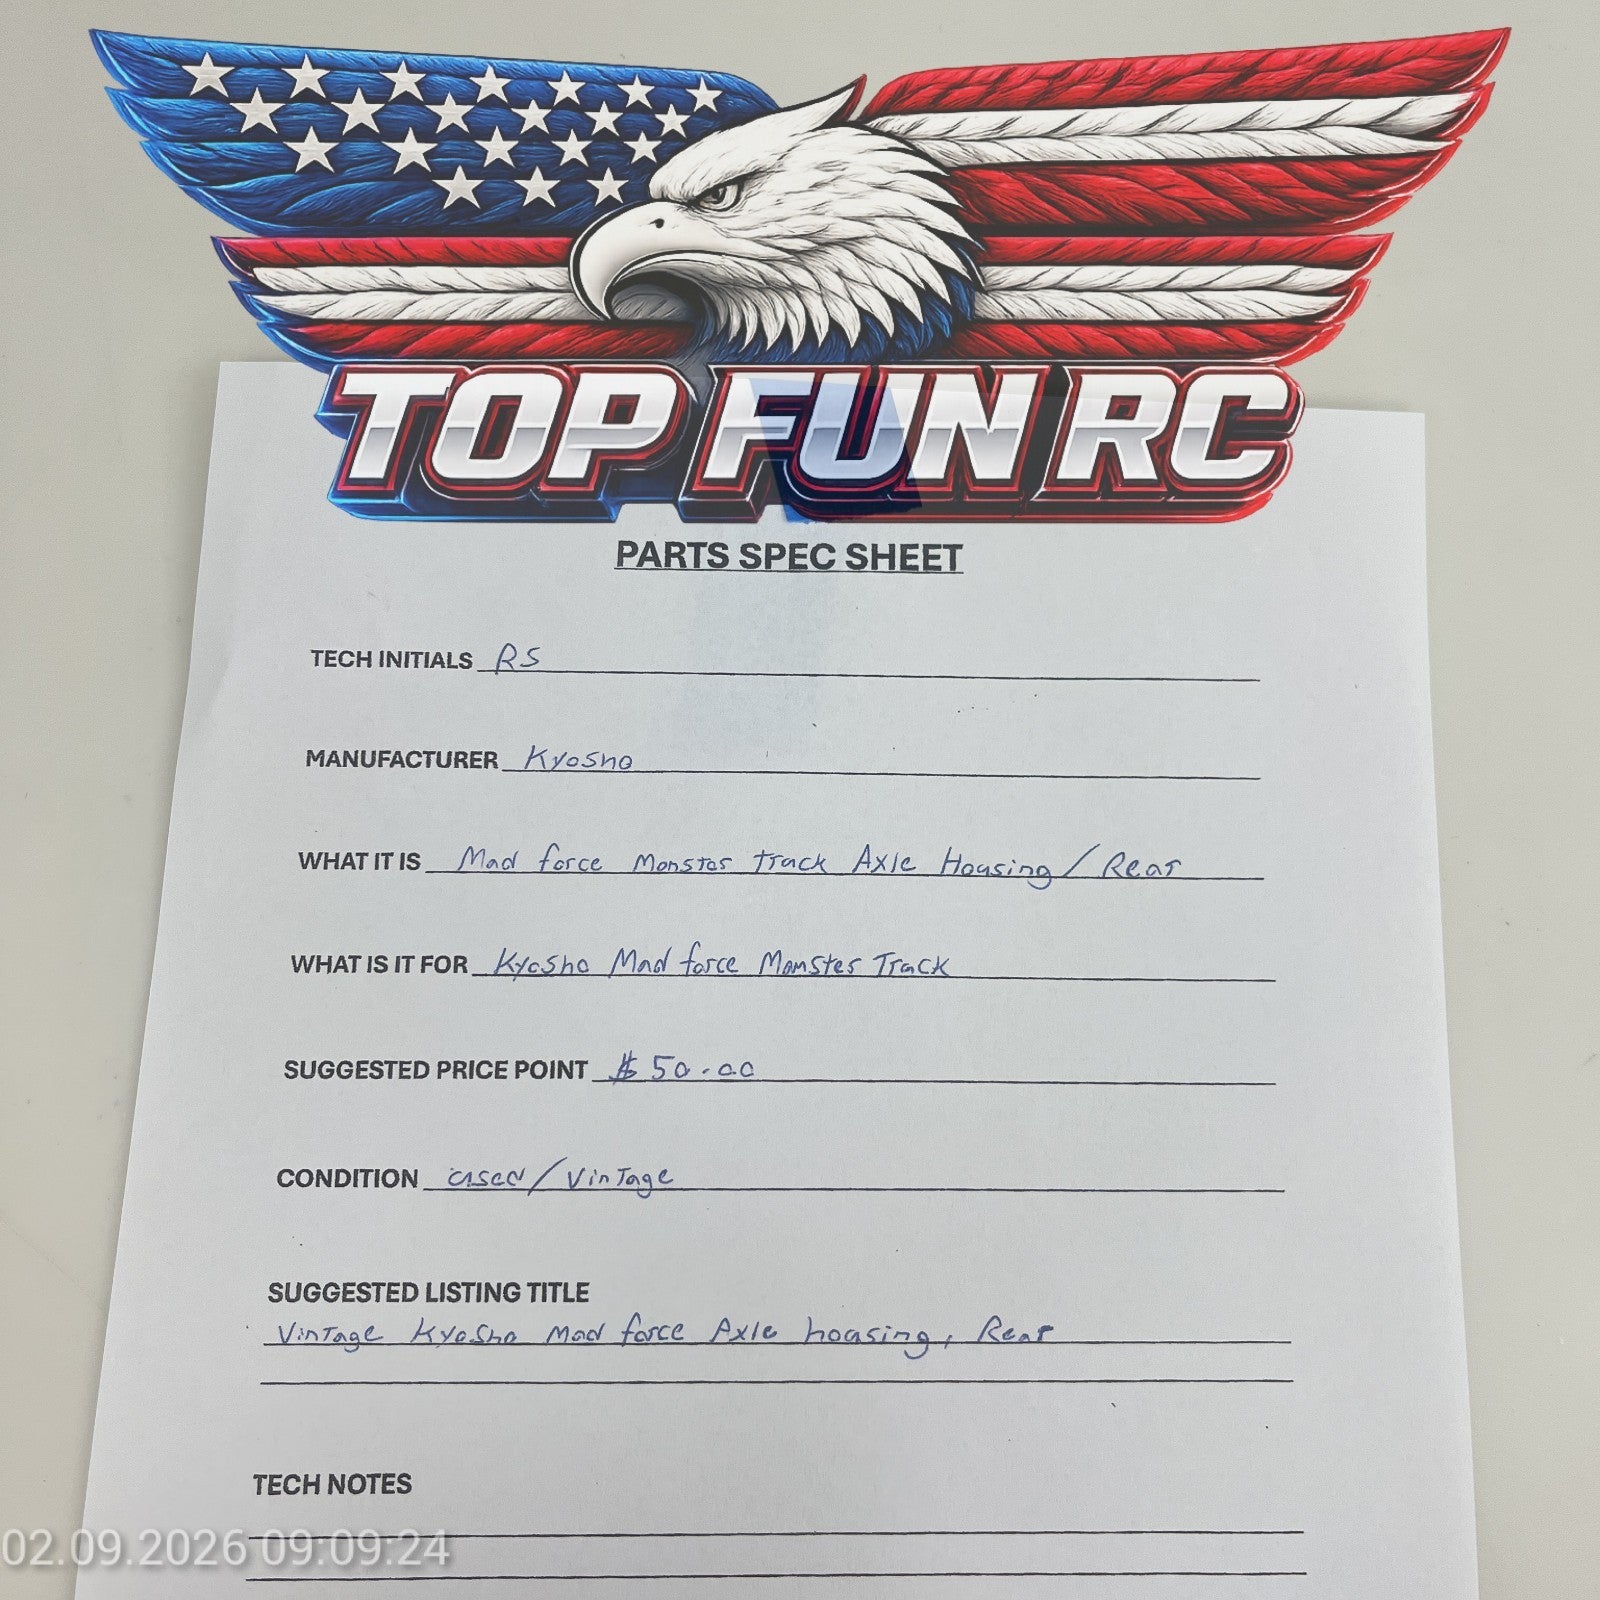 TOP FUN RC
PARTS SPEC SHEET
TECH INITIALS RS
MANUFACTURER Kyosho
WHAT IT IS Mad force Monster Truck Axle Housing / Rear
WHAT IS IT FOR Kyosho Mad force Monster Truck
SUGGESTED PRICE POINT $ 50.00
CONDITION used / Vintage
SUGGESTED LISTING TITLE
Vintage Kyosho Mad force Axle housing, Rear
TECH NOTES
02.09.2026 09:09:24